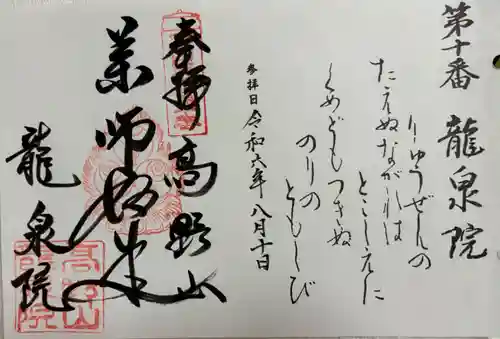 第十番 龍泉院
りゅうぜんの
たえぬながれは
とこしえに
くめどもつきぬ
のりの
ともしび
参拝日 令和六年八月十日
奉拝 高野山
薬師如来
龍泉院